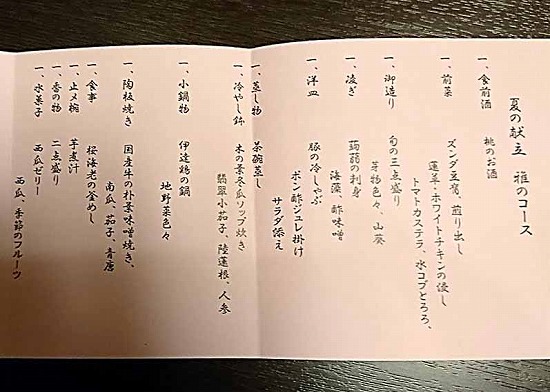 夏の献立 雅のコース
一、食前酒 桃のお酒
一、前菜 ズンダ豆腐、煎り出し
蓮芋・ホワイトチキンの浸し
トマトカステラ、水コブとろろ、
一、御造り 旬の三点盛り
芽物色々、山葵
一、凌ぎ 蒟蒻の刺身
海藻、酢味噌
一、洋皿 豚の冷しゃぶ
ポン酢ジュレ掛け
サラダ添え
一、蒸し物 茶碗蒸し
一、冷やし鉢 木の葉冬瓜ソップ炊き
翡翠小茄子、陸蓮根、人参
一、小鍋物 伊達鶏の鍋
地野菜色々
一、陶板焼き 国産牛の朴葉味噌焼き、
南瓜、茄子、青唐
一、食事 桜海老の釜めし
一、止メ椀 芋煮汁
一、香の物 二点盛り
一、水菓子 西瓜ゼリー
西瓜、季節のフルーツ